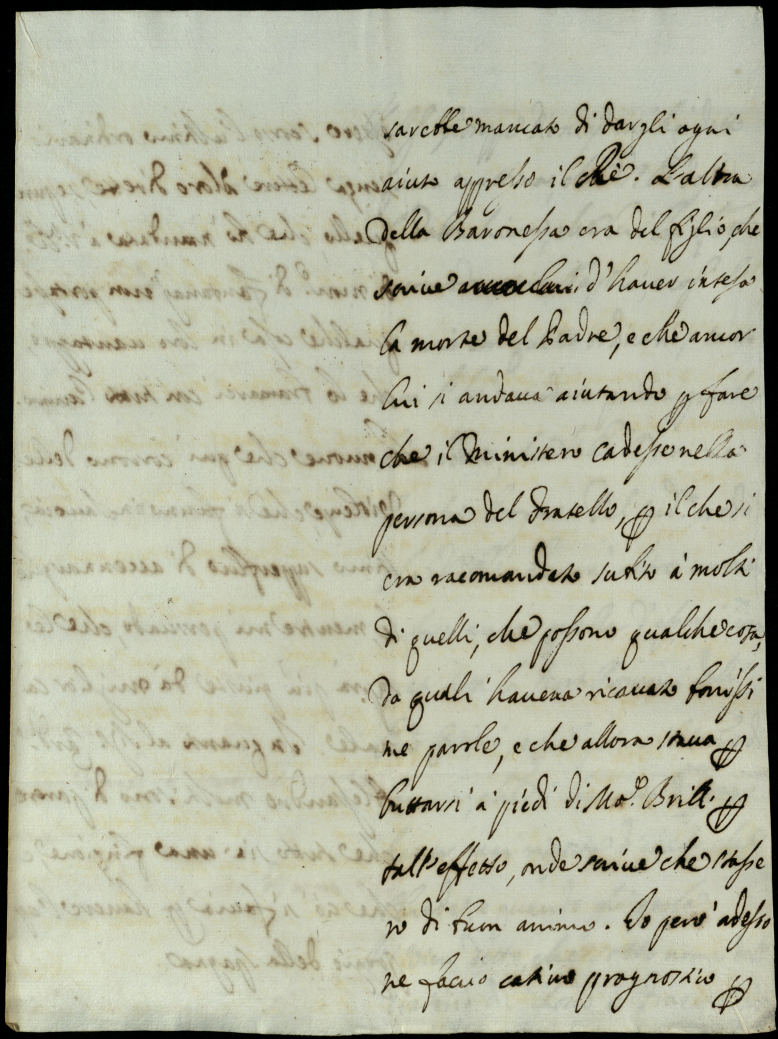 sarebbe mancato di dargli ogni
aiuto appresso il Rè. L'altra
della Baronessa era del figlio, che
scrive d'haver inteso
la morte del Padre, e che ancor
lui si andava aiutando p fare
che il Ministero cadesse nella
persona del fratello, p il che si
era racomandato subito à molti
di quelli, che possono qualche cosa,
da quali haveva ricavato bonissi
me parole, e che allora stava p
buttarsi à piedi di Mo.r Brill. p
tall'effetto, onde scrive che stasse
ro di buon animo. Io però adesso
ne facio cativo prognostico p